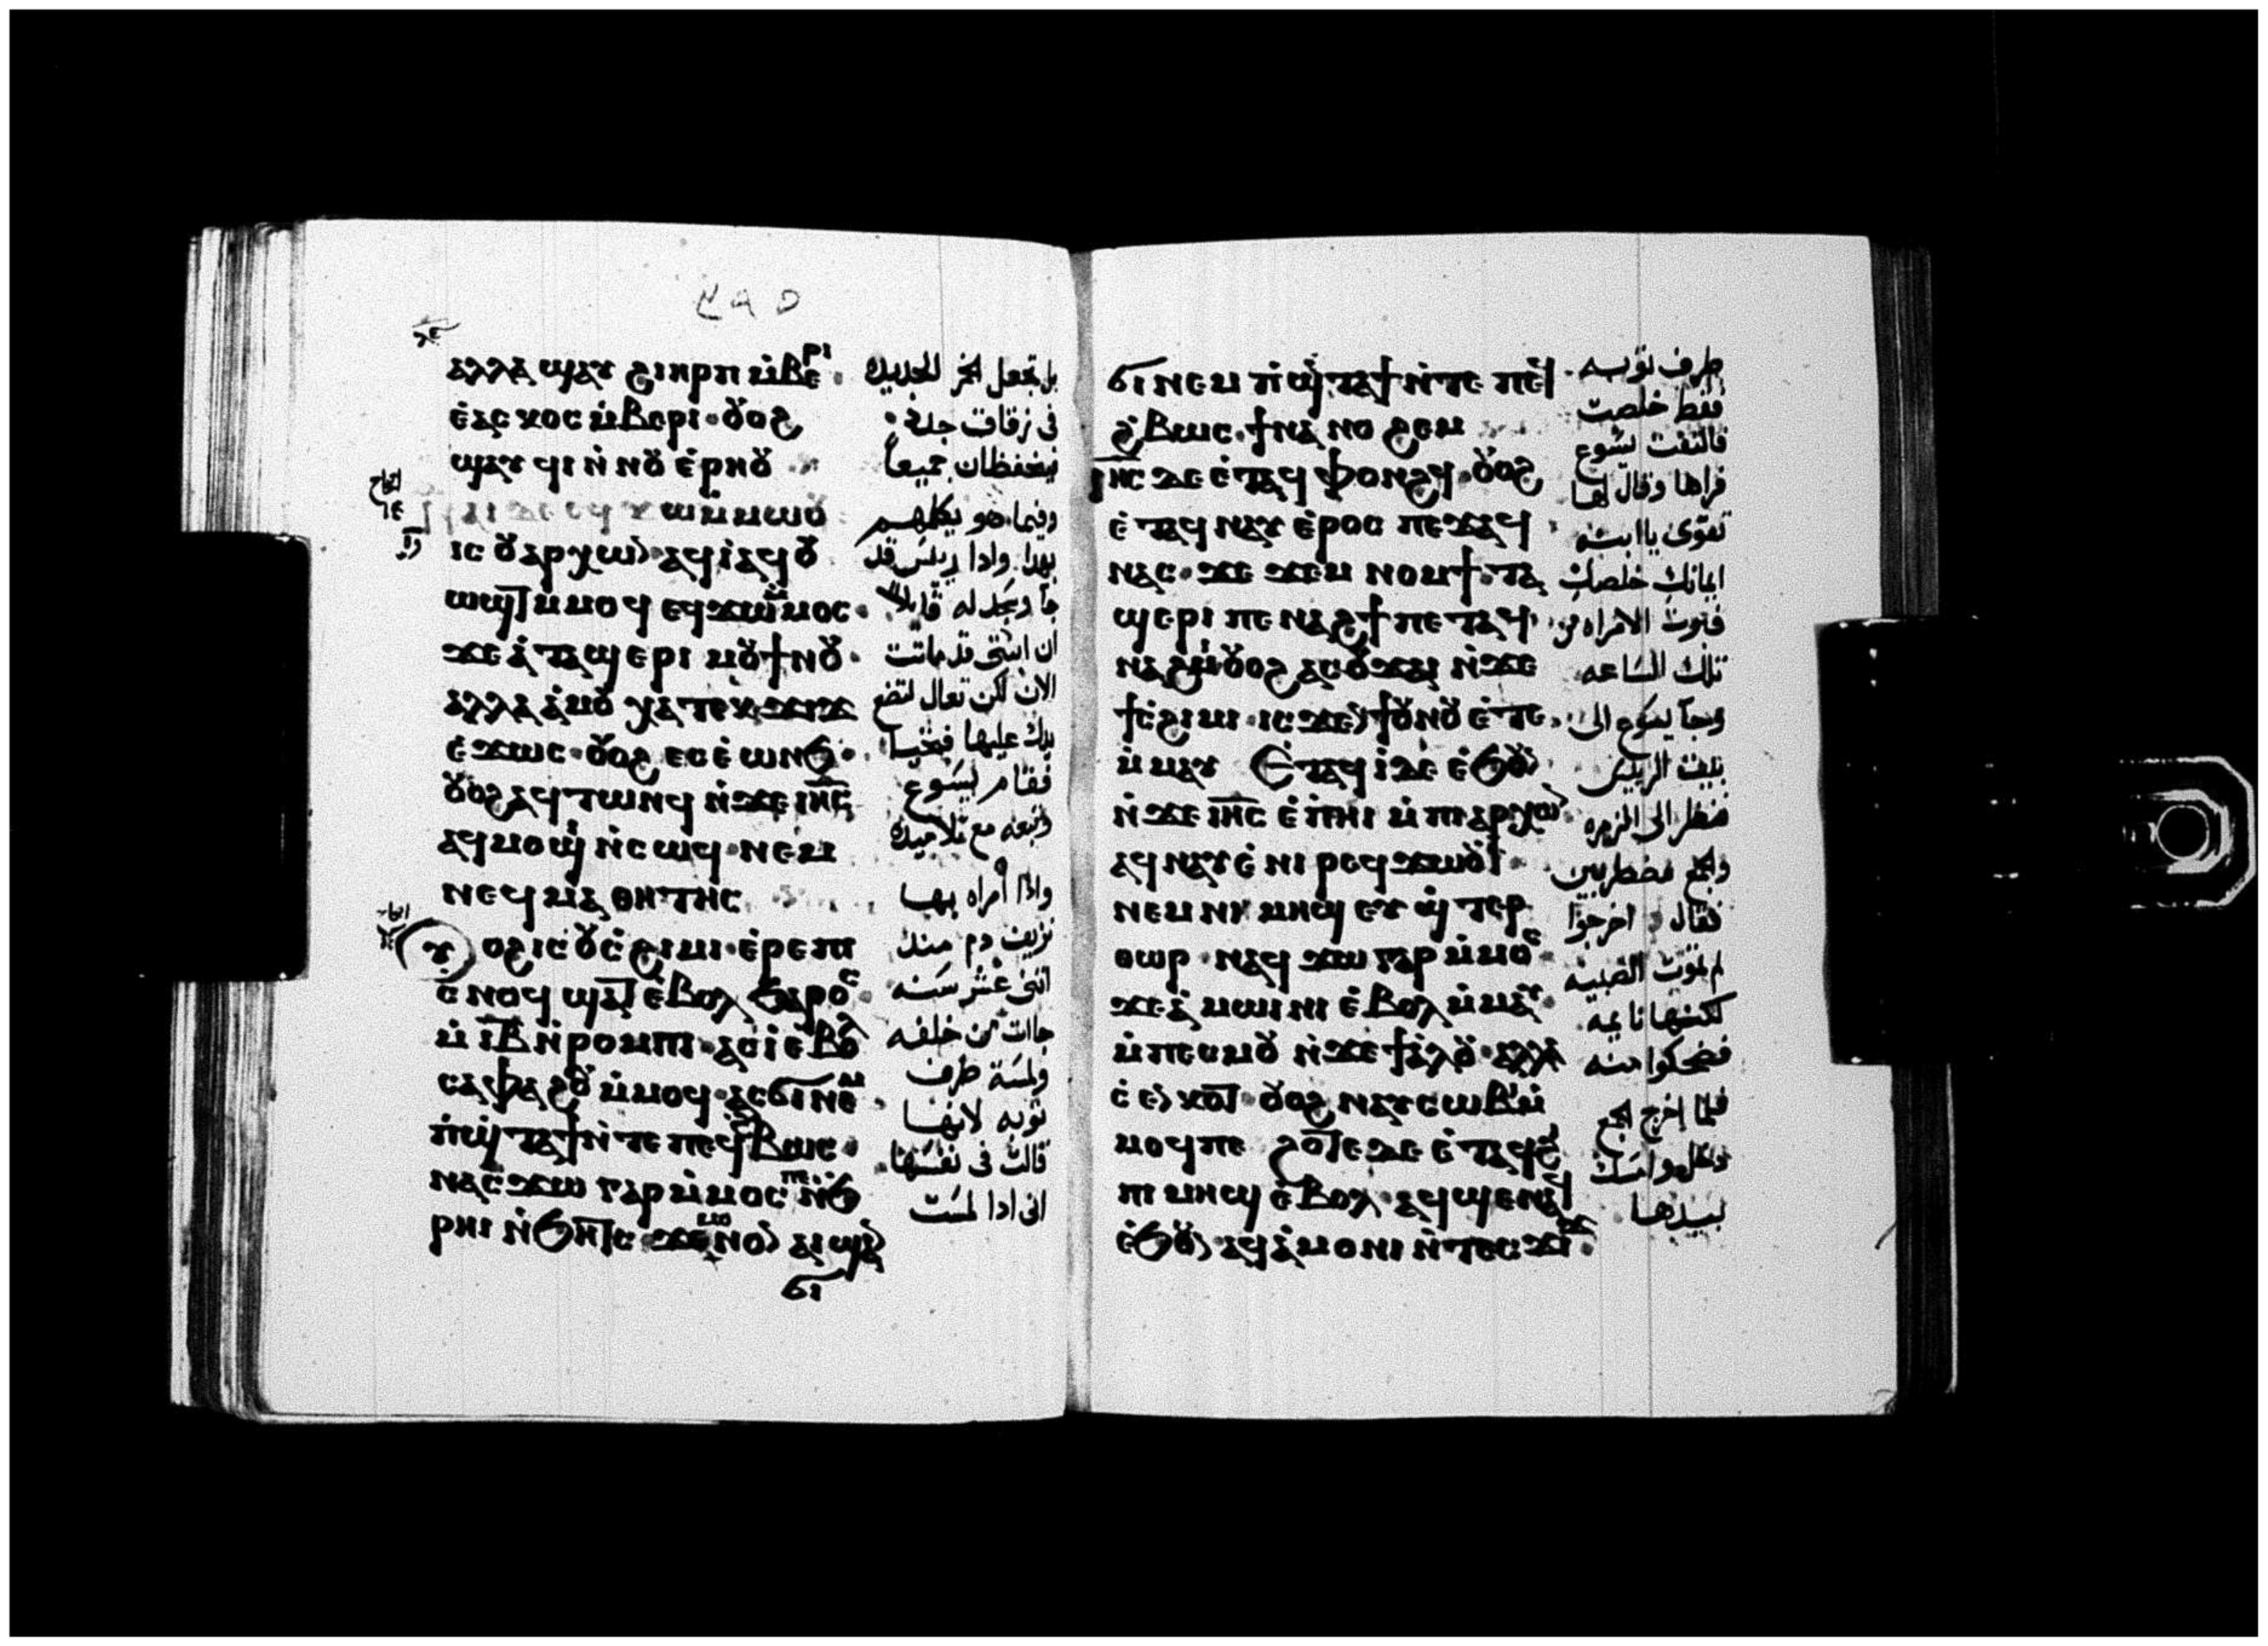 ⲁⲗⲗⲁ ϣⲁⲩ ϩⲓⲏⲣⲡ ⲙ̇ⲃⲉⲣⲓ
ⲉ̇ⲁⲥⲕⲟⲥ ⲙ̇ⲃⲉⲣⲓ ⲟⲩⲟϩ
ϣⲁⲩ
ⲙ̇ⲙⲱⲟⲩ
ⲁϥⲓ̇
ⲙ̇ⲙⲟϥ ⲉϥϫⲱ ⲙ̇ⲙⲟⲥ
ϫⲉ ⲁ̇ ⲧⲁϣⲉⲣⲓ ⲙⲟⲩ ϯⲛⲟⲩ
ⲁⲗⲗⲁ ⲁ̇ⲙⲟⲩ ⲭⲁ ⲧⲉⲕϫⲓϫ
ⲉ̇ϫⲱⲥ ⲟⲩⲟϩ ⲉⲥⲉ̇ⲱⲛϧ
ⲟⲩⲟϩ ⲁϥⲧⲱⲛϥ ⲛ̇ϫⲉ ⲓⲏ̅ⲥ̅
ⲁϥⲙⲟϣⲓ ⲛ̇ⲥⲱϥ ⲛⲉⲙ
ⲛⲉϥⲙⲁⲑⲏⲧⲏⲥ
ⲟⲩⲟϩ ⲓⲥ ⲟⲩⲥ̇ϩⲓⲙⲓ ⲉ̇ⲣⲉ ⲡⲓ
ⲥⲛⲟϥ ϣⲁⲧ ⲉ̇ⲃⲟⲗ ϧⲁⲣⲟⲥ
ⲙ̇ ⲓ̅ⲃ̅ ⲛ̇ⲣⲟⲙⲡⲓ ⲁⲥⲓ̇ ⲉ̇ⲃⲟⲗ
ⲥⲁⲫⲁϩⲟⲩ ⲙ̇ⲙⲟϥ ⲁⲥϭⲓ ⲛⲉⲙ
ⲡ̇ϣⲧⲁϯ ⲛ̇ⲧⲉ ⲡⲉϥϩ̇ⲃⲱⲥ
ⲛⲁⲥϫⲱ ⲅⲁⲣ ⲙ̇ⲙⲟⲥ ⲡⲉ ⲛ̇ϧ
ⲣⲏⲓ ⲛ̇ϧⲏⲧⲥ ϫⲉ ⲙⲟⲛⲟⲛ ⲁⲓϣⲁⲛ
ϭⲓ
بل تجعل الخمر الجديده
فى زقاق جدد
فيتحفظان جميعاً
وفيما هو يكلمهم
بهذا واذا رييس قد
جآ وسجد له قايلا
ان ابنتى قد ماتت
الان لكن تعال لتضع
يدك عليها فتحيا
فقام يسوع
وتبعه مع تلاميده
واذا امراه بها
نزيف دم منذ
اثنى عشر سنه
جاات من خلفه
ولمسة طرف
ثوبه لانها
قالت فى نفسها
انى اذا لمست
ϭⲓ ⲛⲉⲙ ⲡ̇ϣ̇ⲧⲁϯ ⲛ̇ⲧⲉ ⲡⲉϥ
ϩ̇ⲃⲱⲥ ϯⲛⲁⲛⲟϩⲉⲙ
ⲓⲏ̅ⲥ̅ ⲇⲉ ⲉ̇ⲧⲁϥⲫⲟⲛϩϥ ⲟⲩⲟϩ
ⲉ̇ⲧⲁϥⲛⲁⲩ ⲉ̇ⲣⲟⲥ ⲡⲉϫⲁϥ
ⲛⲁⲥ ϫⲉ ϫⲉⲙⲛⲟⲙϯ ⲧⲁ
ϣⲉⲣⲓ ⲡⲉⲛⲁϩϯ ⲡⲉⲧⲁϥ
ⲛⲁϩⲙⲓ ⲟⲩⲟϩ ⲁⲥⲟⲩϫⲁⲓ ⲛ̇ϫⲉ
ϯⲥ̇ϩⲓⲙⲓ ⲓⲥϫⲉⲛ ϯⲟⲩⲛⲟⲩ ⲉ̇ⲧⲉ
ⲙ̇ⲙⲁⲩ Ⲉ̇ⲧⲁϥⲓ̇ ⲇⲉ ⲉ̇ϧⲟⲩⲛ
ⲛ̇ϫⲉ ⲓⲏ̅ⲥ̅ ⲉ̇ⲡ̇ⲏⲓ ⲙ̇ⲡⲓⲁⲣⲭⲱⲛ
ⲁϥⲛⲁⲩ ⲉ̇ⲛⲓⲣⲉϥϫⲱ
ⲛⲉⲙ ⲛⲓⲙⲏϣ ⲉⲩϣ̇ⲧⲉⲣ
ⲑⲱⲣ ⲛⲁϥϫⲱ ⲅⲁⲣ ⲙ̇ⲙⲟⲥ
ϫⲉ ⲁ̇ⲙⲱⲓⲛⲓ ⲉ̇ⲃⲟⲗ ⲙ̇ⲙⲁⲩ
ⲙ̇ⲡⲉⲥⲙⲟⲩ ⲛ̇ϫⲉ ϯⲁ̇ⲗⲟⲩ ⲁⲗⲗⲁ
ⲟⲩⲟϩ ⲛⲁⲩⲥⲱⲃⲓ ⲙ̇
ⲙⲟϥ ⲡⲉ ϩⲟⲧⲉ ⲇⲉ ⲉ̇ⲧⲁϥϩⲓ
ⲡⲓⲙⲏϣ ⲉ̇ⲃⲟⲗ ⲁϥϣⲉⲛⲁϥ
ⲉ̇ϧⲟⲩⲛ ⲁϥⲁ̇ⲙⲟⲛⲓ ⲛ̇ⲧⲉⲥϫⲓϫ
طرف ثوبه
فقط خلصت
فالتفت يسوع
فراها وقال لها
تقوى ياابنه
ايمانك خلصك
فبرت الامراه من
تلك الساعه
وجآ يسوع الى
بيت الرييس
فنظر الى
والجمع مضطربين
فقال اخرجوا
لم تموت الصبيه
لكنها نايمه
فضحكوا منه
فلما اخرج الجمع
دخل وامسك
بيدها